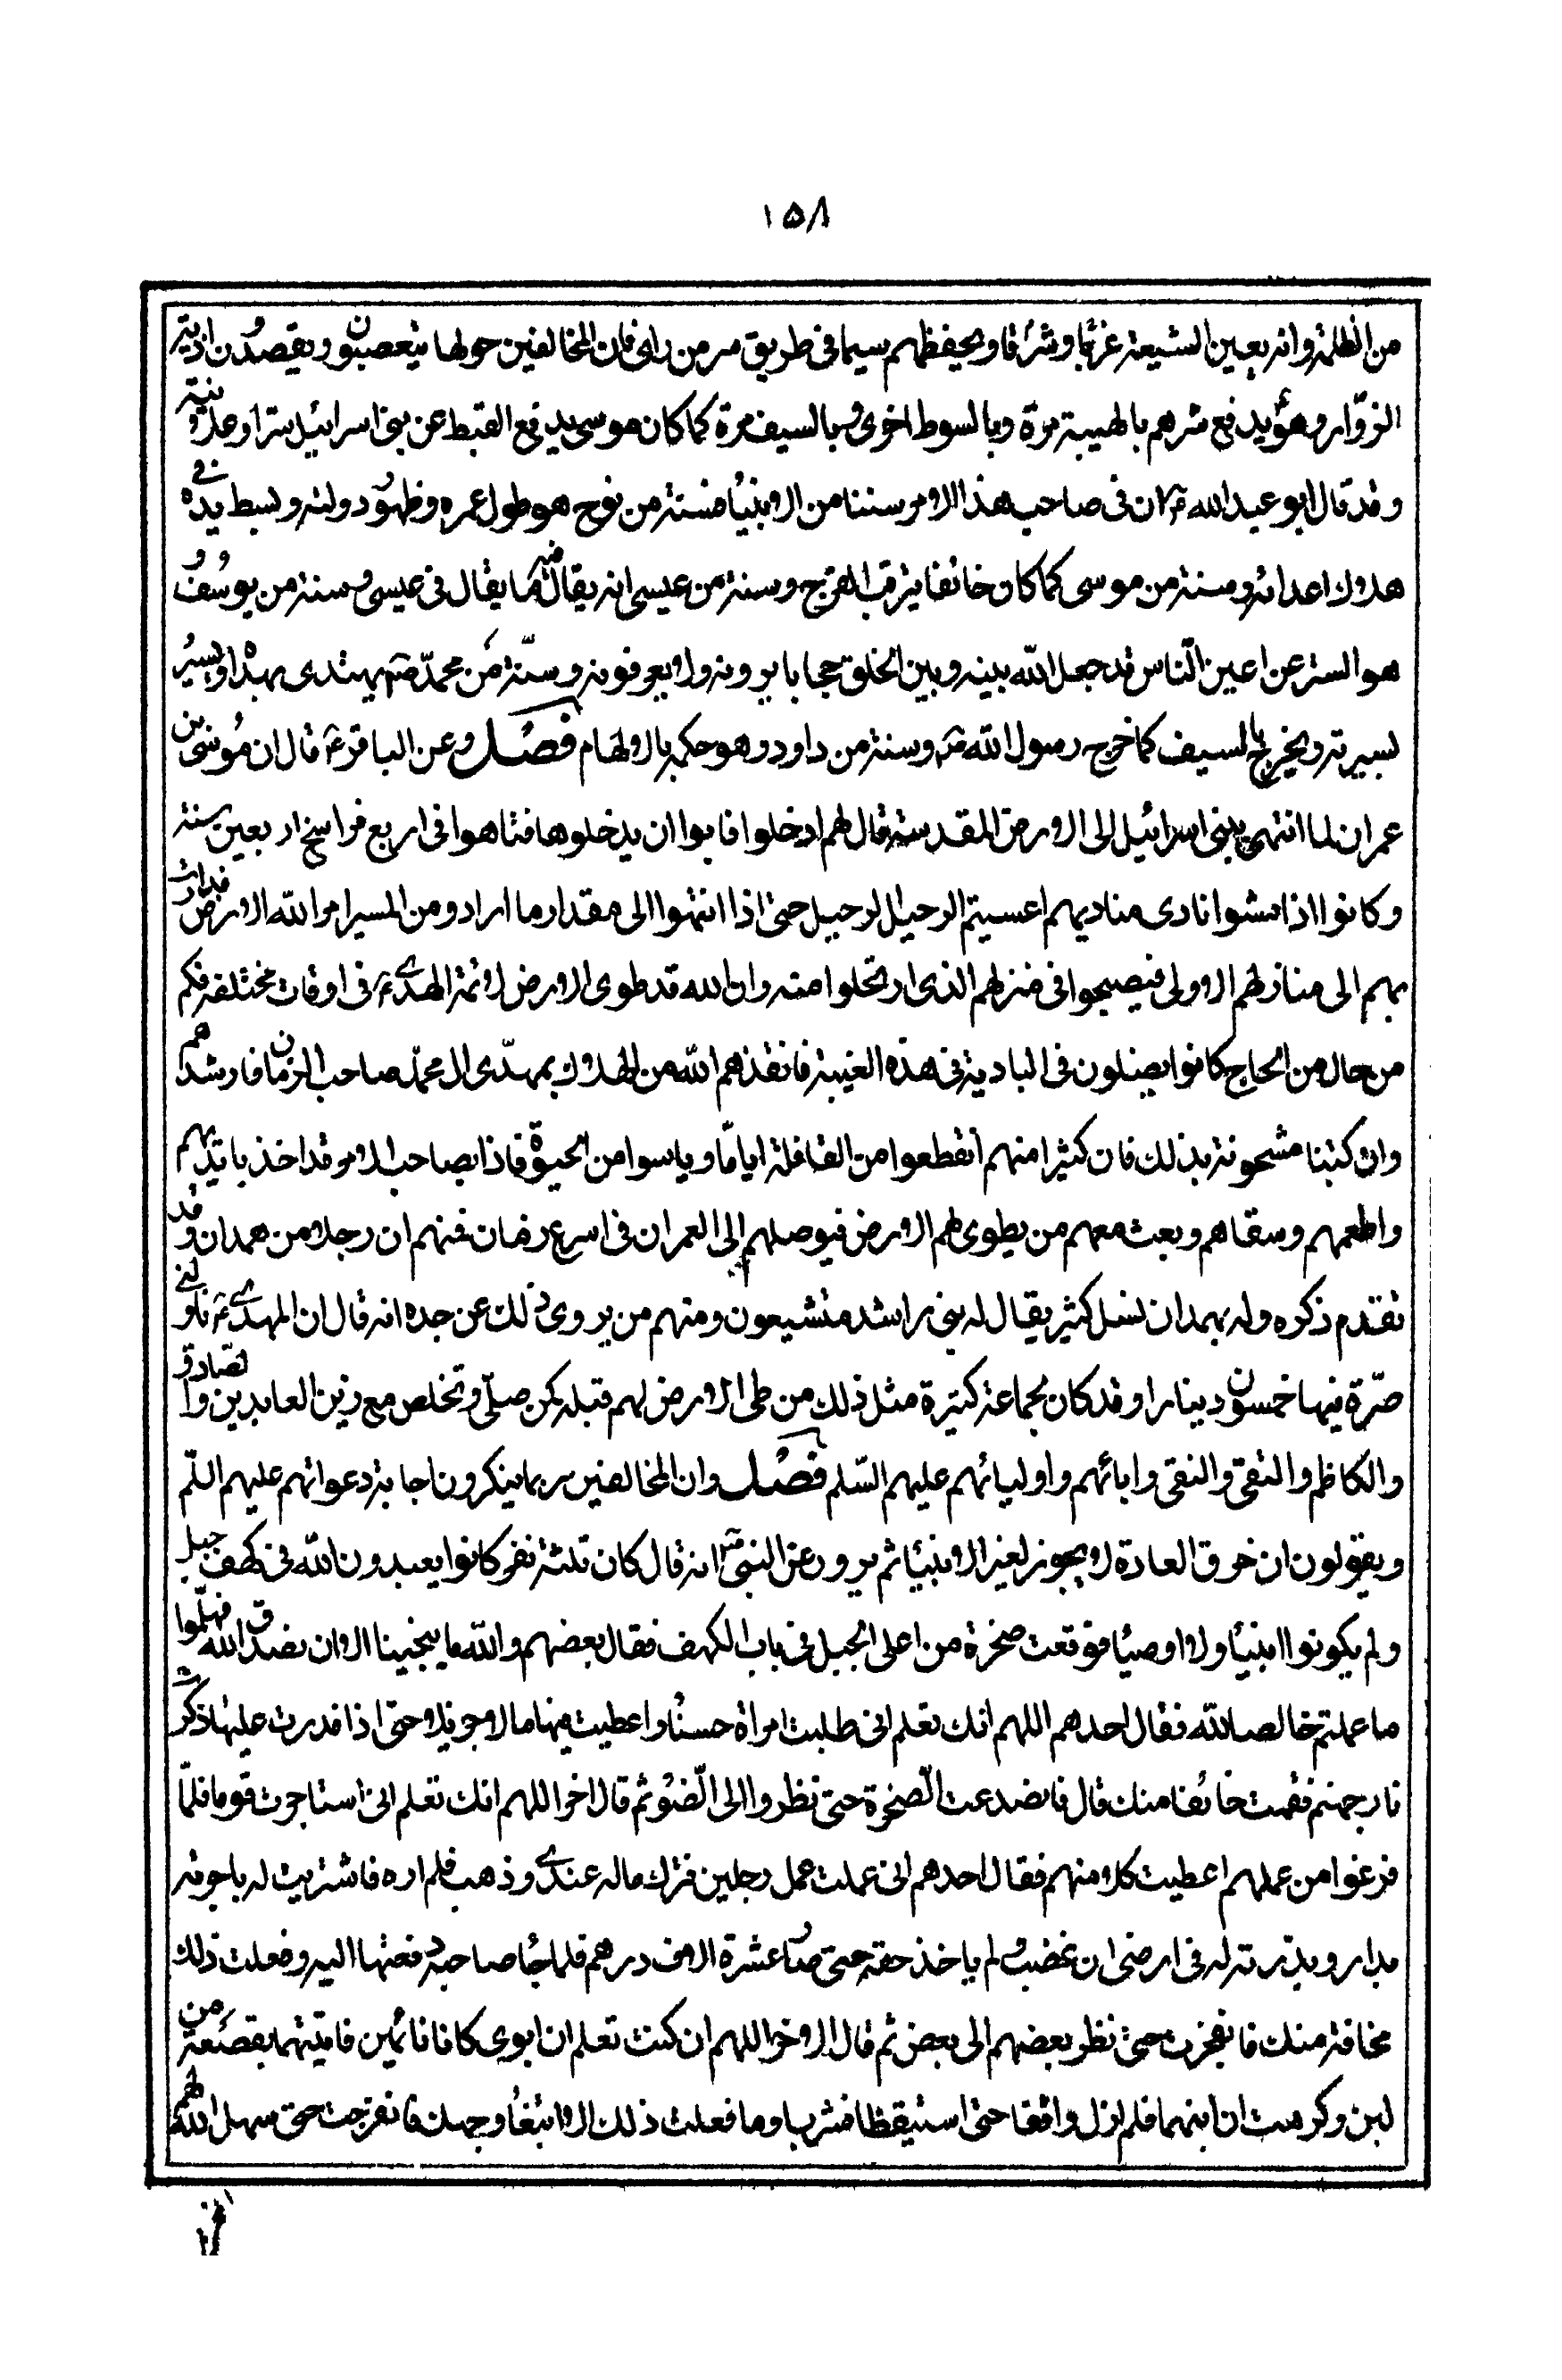 ١٥٨
من الظلمة وانه يعين الشيعة غربا وشرقا ويحفظهم سيما فى طريق سر من راى فان المخالفين حولها يتعصبون ويقصدون اذية
الزوّار وهو يدفع شرهم بالهيبة مرة وبالسوط اخرى وبالسيف مرة كما كان موسى يدفع القبط عن بنى اسرائيل سترا وعلانية
وقد قال ابو عبد الله ع ان فى صاحب هذا الامر سننا من الانبياء فسنة من نوح هو طول عمره وظهور دولته وبسط يده فى
هلاك اعدائه وسنة من موسى كما كان خائفا يترقب الفرج وسنة من عيسى انه يقال فيه ما يقال فى عيسى وسنة من يوسف
هو الستر عن اعين الناس قد جعل الله بينه وبين الخلق حجابا يرونه ولا يعرفونه وسنّة من محمدّ ص يهتدى بهداه ويسير
بسيرته ويخرج بالسيف كما خرج رسول الله ص وسنة من داود وهو حكمه بالالهام فصل وعن الباقر ع قال ان موسى بن
عمران لما انتهى ببنى اسرائيل الى الارض المقدسة قال لهم ادخلوا فابوا ان يدخلوها فتاهوا فى اربع فراسخ اربعين سنة
وكانوا اذا مشوا نادى مناديهم امسيتم الرحيل الرحيل حتى اذا انتهوا الى مقدار ما ارادو من المسير امر الله الارض فدارت
بهم الى منازلهم الاولى فيصبحوا فى منزلهم الذى ارتحلوا منه وان الله قد طوى الارض لائمة الهدى ع فى اوقات مختلفة فكم
من حال من الحاج كانوا يضلون فى البادية فى هذه الغيبة فانقذهم الله من الهلاك بمهدّى ال محمدّ صاحب الزمان فارشدهم
وان كتبنا مشحونة بذلك فان كثيرا منهم انقطعوا من القافلة اياما وياسوا من الحيوة فاذا بصاحب الامر قد اخذ بايديهم
واطعمهم وسقاهم وبعث معهم من يطوى لهم الارض فيوصلهم الى العمران فى اسرع زمان فمنهم ان رجلا من همدان وقد
تقدم ذكره وله بهمدان نسل كثير يقال له بنى راشد متشيعون ومنهم من يروى ذلك عن جده انه قال ان المهدى ع ناولنى
صرّة فيها خمسون دينارا وقد كان لجماعة كثيرة مثل ذلك من طى الارض لهم قبله كمن صلّى وتخلص مع زين العابدين والصادق
والكاظم والتقى والنقى وابائهم واوليائهم عليهم السّلم فصل وان المخالفين ربما ينكرون اجابة دعواتهم عليهم السلّم
ويقولون ان خرق العادة لا يجوز لغير الانبياء ثم يروون عن النبى ص انه قال كان ثلثة نفر كانوا يعبدون الله فى كهف جبل
ولم يكونوا انبياء ولا اوصياء فوقعت صخرة من اعلى الجبل فى باب الكهف فقال بعضهم والله ما ينجينا الا ان نصدق الله فهلمّوا
ما عملتم خالصا لله فقال احدهم اللهم انك تعلم انى طلبت امراة حسناء واعطيت فيها مالا جزيلا حتى اذا قدرت عليها ذكرت
نار جهنم فقمت خائفا منك قال فانصدعت الصّخرة حتى نظروا الى الضّوء ثم قال اخر اللهم انك تعلم انى استاجرت قوما فلمّا
فرغوا من عملهم اعطيت كلا منهم فقال احدهم انى عملت عمل رجلين فترك ماله عندى وذهب فلم اره فاشتريت له باجرته
بدار وبذرته له فى ارضى ان غضب ولم ياخذ حقه حتى صار عشرة الاف درهم فلما جاء صاحبه دفعتها اليه وفعلت ذلك
مخافة منك فانفجرت حتى نظر بعضهم الى بعض ثم قال الاخر اللهم ان كنت تعلم ان ابوى كانا نائمين فاتيتهما بقصعة من
لبن وكرهت ان انبههما فلم ازل واقفا حتى استيقظا فشربا وما فعلت ذلك الا ابتغاء وجهك فانفرجت حتى سهل الله لهم